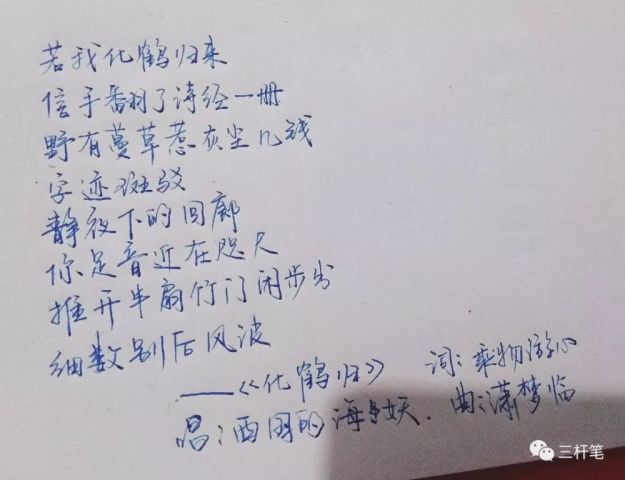 若我化鹤归来
信手翻了诗经一册
野有蔓草惹灰尘几钱
字迹斑驳
静夜下的回廊
你足音近在咫尺
推开半扇竹门闲步出
细数别后风波
——《化鹤归》 词：乘物游心
唱：西国的海妖. 曲：潇梦临
三杆笔